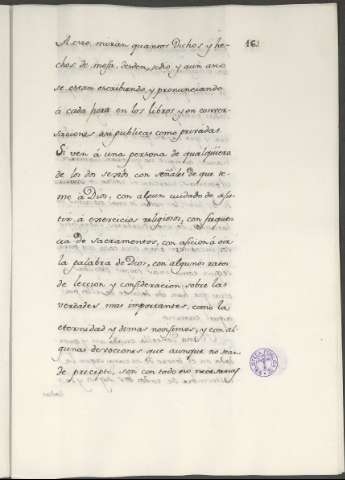 A esto miran quantos Dichos y he-
chos de mofa, desden, odio y aun
se estan escribiendo y pronunciando
á cada hora en los libros y en conver-
saciones asi publicas como privadas.
Si ven á una persona de qualquiera
de los dos sexos con señales de que te-
me á Dios, con algun cuidado de asis-
tir á exercicios religiosos, con freqüen-
cia de Sacramentos, con aficion á oir
la palabra de Dios, con algunos ratos
de leccion y consideracion sobre las
verdades mas importantes, como la
eternidad y demas novisimos, y con al-
gunas devociones que aunque no sean
de precepto, son con todo eso necesarias
16